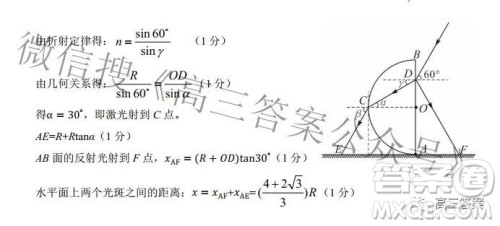 由折射定律得：n=sin60°/sinγ （1分）
由几何关系得：R/sin60°=OD/sinα（1分）
得α = 30°，即激光射到 C 点。
AE=R+Rtanα（1分）
AB 面的反射光射到 F 点，x_AF = (R + OD)tan30°（1分）
水平面上两个光斑之间的距离：x = x_AF+x_AE=((4+2√3)/3)R（1分）
B
D
60°
γ
C
α
β
O
E
A
F
微信搜《高三答案公众号》
答案圈
高三答案